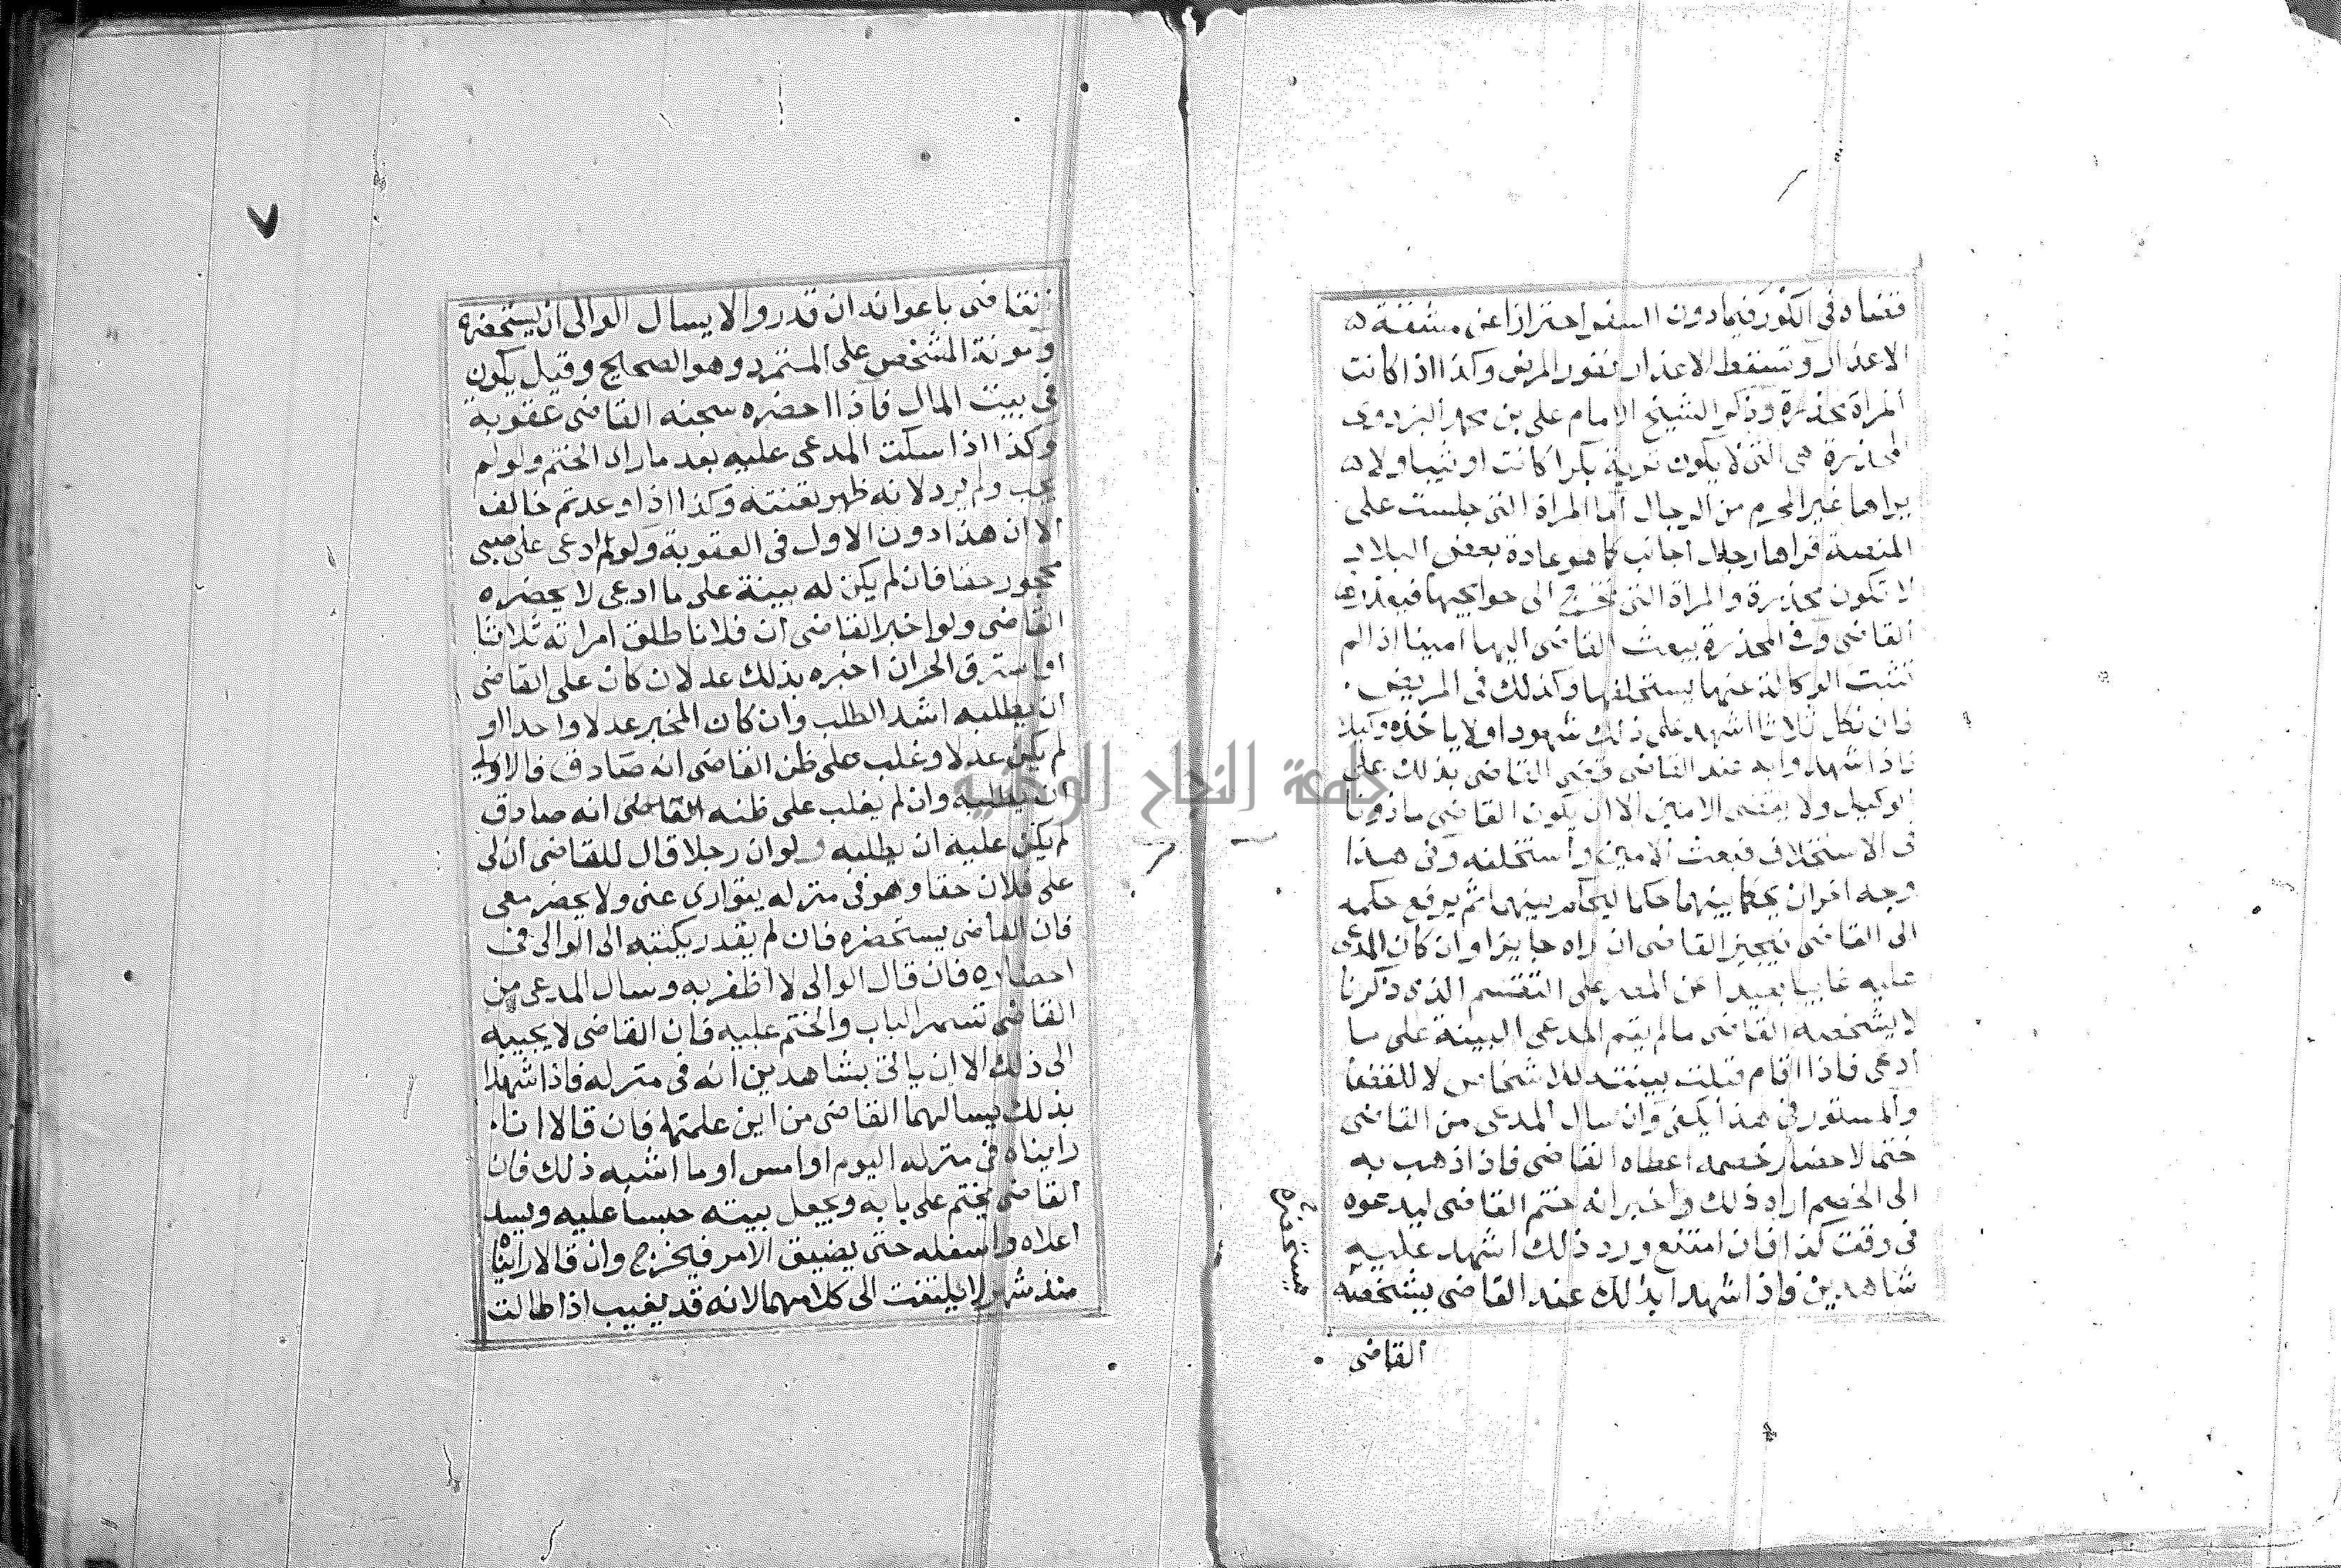 فقضاه في الكور فيما دون السفر احترازا عن مشقة
الاعذار وتسقط الاعذار بقدر المرض وكذا اذا كانت
المراة مخدرة وذكر الشيخ الامام علي بن محمد البزدوي
المخدرة هي التي لا يكون بكرا كانت او ثيبا ولا
يراها غير المحرم من الرجال أما المراة التي جلست على
المنصة فراها رجال أجانب كما هو عادة بعض البلاد
لا تكون مخدرة والمراة التي تخرج الى حوائجها
القاضي وفي المخدرة يبعث القاضي اليها امينا اذا لم
تثبت الوكالة عنها يستحلفها وكذلك في المريض
فان نكل ثلاثا اشهد على ذلك شهودا ولا ياخذه وكيلا
فاذا شهدوا به عند القاضي قضى القاضي بذلك على
الوكيل ولا يقضى الامين الا ان يكون القاضي ماذونا
في الاستخلاف فبعث الامين وأستخلفه وفي هذا
وجه اخر ان يحكما بينهما حكما ليحكم بينهما ثم يرفع حكمه
الى القاضي فيجيز القاضي ان راه جايزا وان كان المدعى
عليه غايبا بعيدا عن المصر على التقسم الذي ذكرنا
لا يشخصه القاضي ما لم يقم المدعي البينة على ما
أدعى فاذا اقام قبلت بينته للاشخاص لا للقضا
والمستور في هذا يكفي وان سال المدعي من القاضي
ختما لاحضار خصمه اعطاه القاضي فاذا ذهب به
الى الخصم اراه ذلك وأخبر انه ختم القاضي ليدعوه
في وقت كذا فان امتنع ورد ذلك اشهد عليه
شاهدين فاذا شهدا بذلك عند القاضي يشخصه
القاضي
القاضي باعوانه ان قدر والا يسال الوالي ان يستحضره
ومونة المشخص على المتمرد وهو الصحيح وقيل يكون
في بيت المال فاذا احضره سجنه القاضي عقوبة
وكذا اذا سكت المدعى عليه بعد ما راى الختم ولو لم
يجب ولم يرد لانه ظهر تعنته وكذا اذا وعد ثم خالف
الا ان هذا دون الاول في العقوبة ولو ادعى على صبي
محجور حقا فان لم يكن له بينة على ما ادعى لا يحضره
القاضي ولو اخبر القاضي أن فلانا طلق امراته ثلاثا
او استرق الحر ان اخبره بذلك عدلان كان على القاضي
أن يطلبه اشد الطلب وان كان المخبر عدلا واحدا او
لم يكن عدلا وغلب على ظن القاضي انه صادق فالاولى
ان يطلبه وان لم يغلب على ظنه القاضي انه صادق
لم يكن عليه ان يطلبه ولو ان رجلا قال للقاضي ان لي
على فلان حقا وهو في منزله يتوارى عني ولا يحضر معي
فان القاضي يستحضره فان لم يقدر يكتبه الى الوالي في
احضاره فان قال الوالي لا اظفر به وسال المدعي من
القاضي تسمر الباب والختم عليه فان القاضي لا يجيبه
الى ذلك الا ان ياتي بشاهدين انه في منزله فاذا شهدا
بذلك يسالهما القاضي من اين علمتما فان قالا انا
رايناه في منزله اليوم او امس او ما اشبه ذلك فان
القاضي يختم على بابه ويجعل بيته حبسا عليه ويسد
أعلاه واسفله حتى يضيق الامر فيخرج وان قالا راينا
منذ شهر لا يلتفت الى كلامهما لانه قد يغيب اذا طالت
جامعة النجاح الوطنية